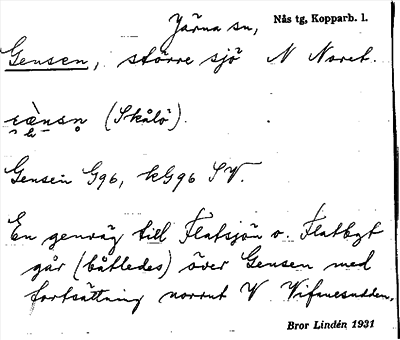 Järna sn, Nås tg, Kopparb. l.
Gensen, större sjö N Noret.
(Skålö).
Gensen G96, kG96 SV.
En genväg till Flatsjön o. Flatbyt
går (båtledes) över Gensen med
fortsättning norrut V Vifsnesudden.
Bror Lindén 1931